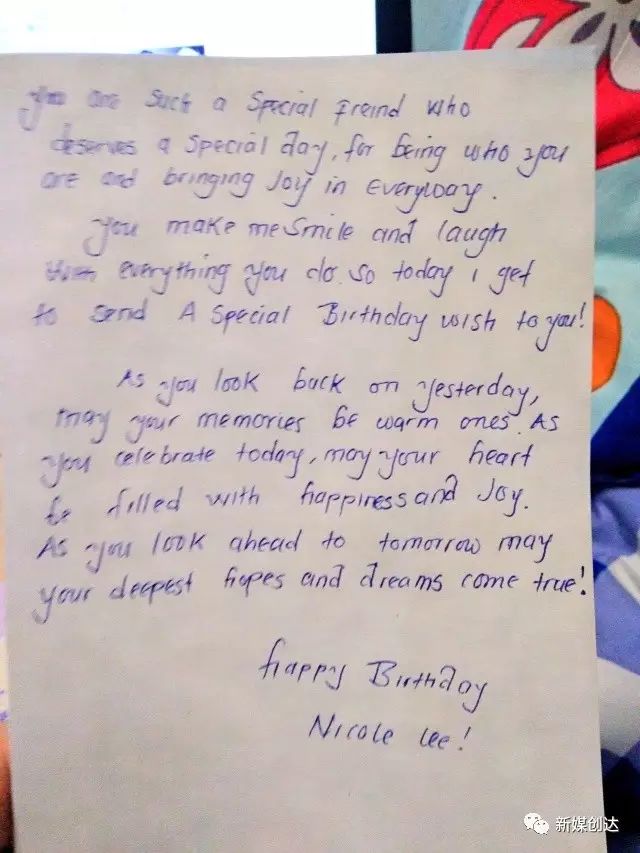 You are such a special freind who
deserves a special day, for being who you
are and bringing Joy in Everyway.
You make me smile and laugh
with everything you do. so today i get
to send A special Birthday wish to you!
As you look back on yesterday,
may your memories be warm ones. As
you celebrate today, may your heart
be filled with happiness and Joy.
As you look ahead to tomorrow may
your deepest hopes and dreams come true!
Happy Birthday
Nicole Lee!
新媒创达